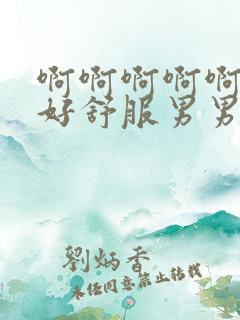 啊啊啊啊啊
好舒服男男
劉炳香
未经同意禁止转载